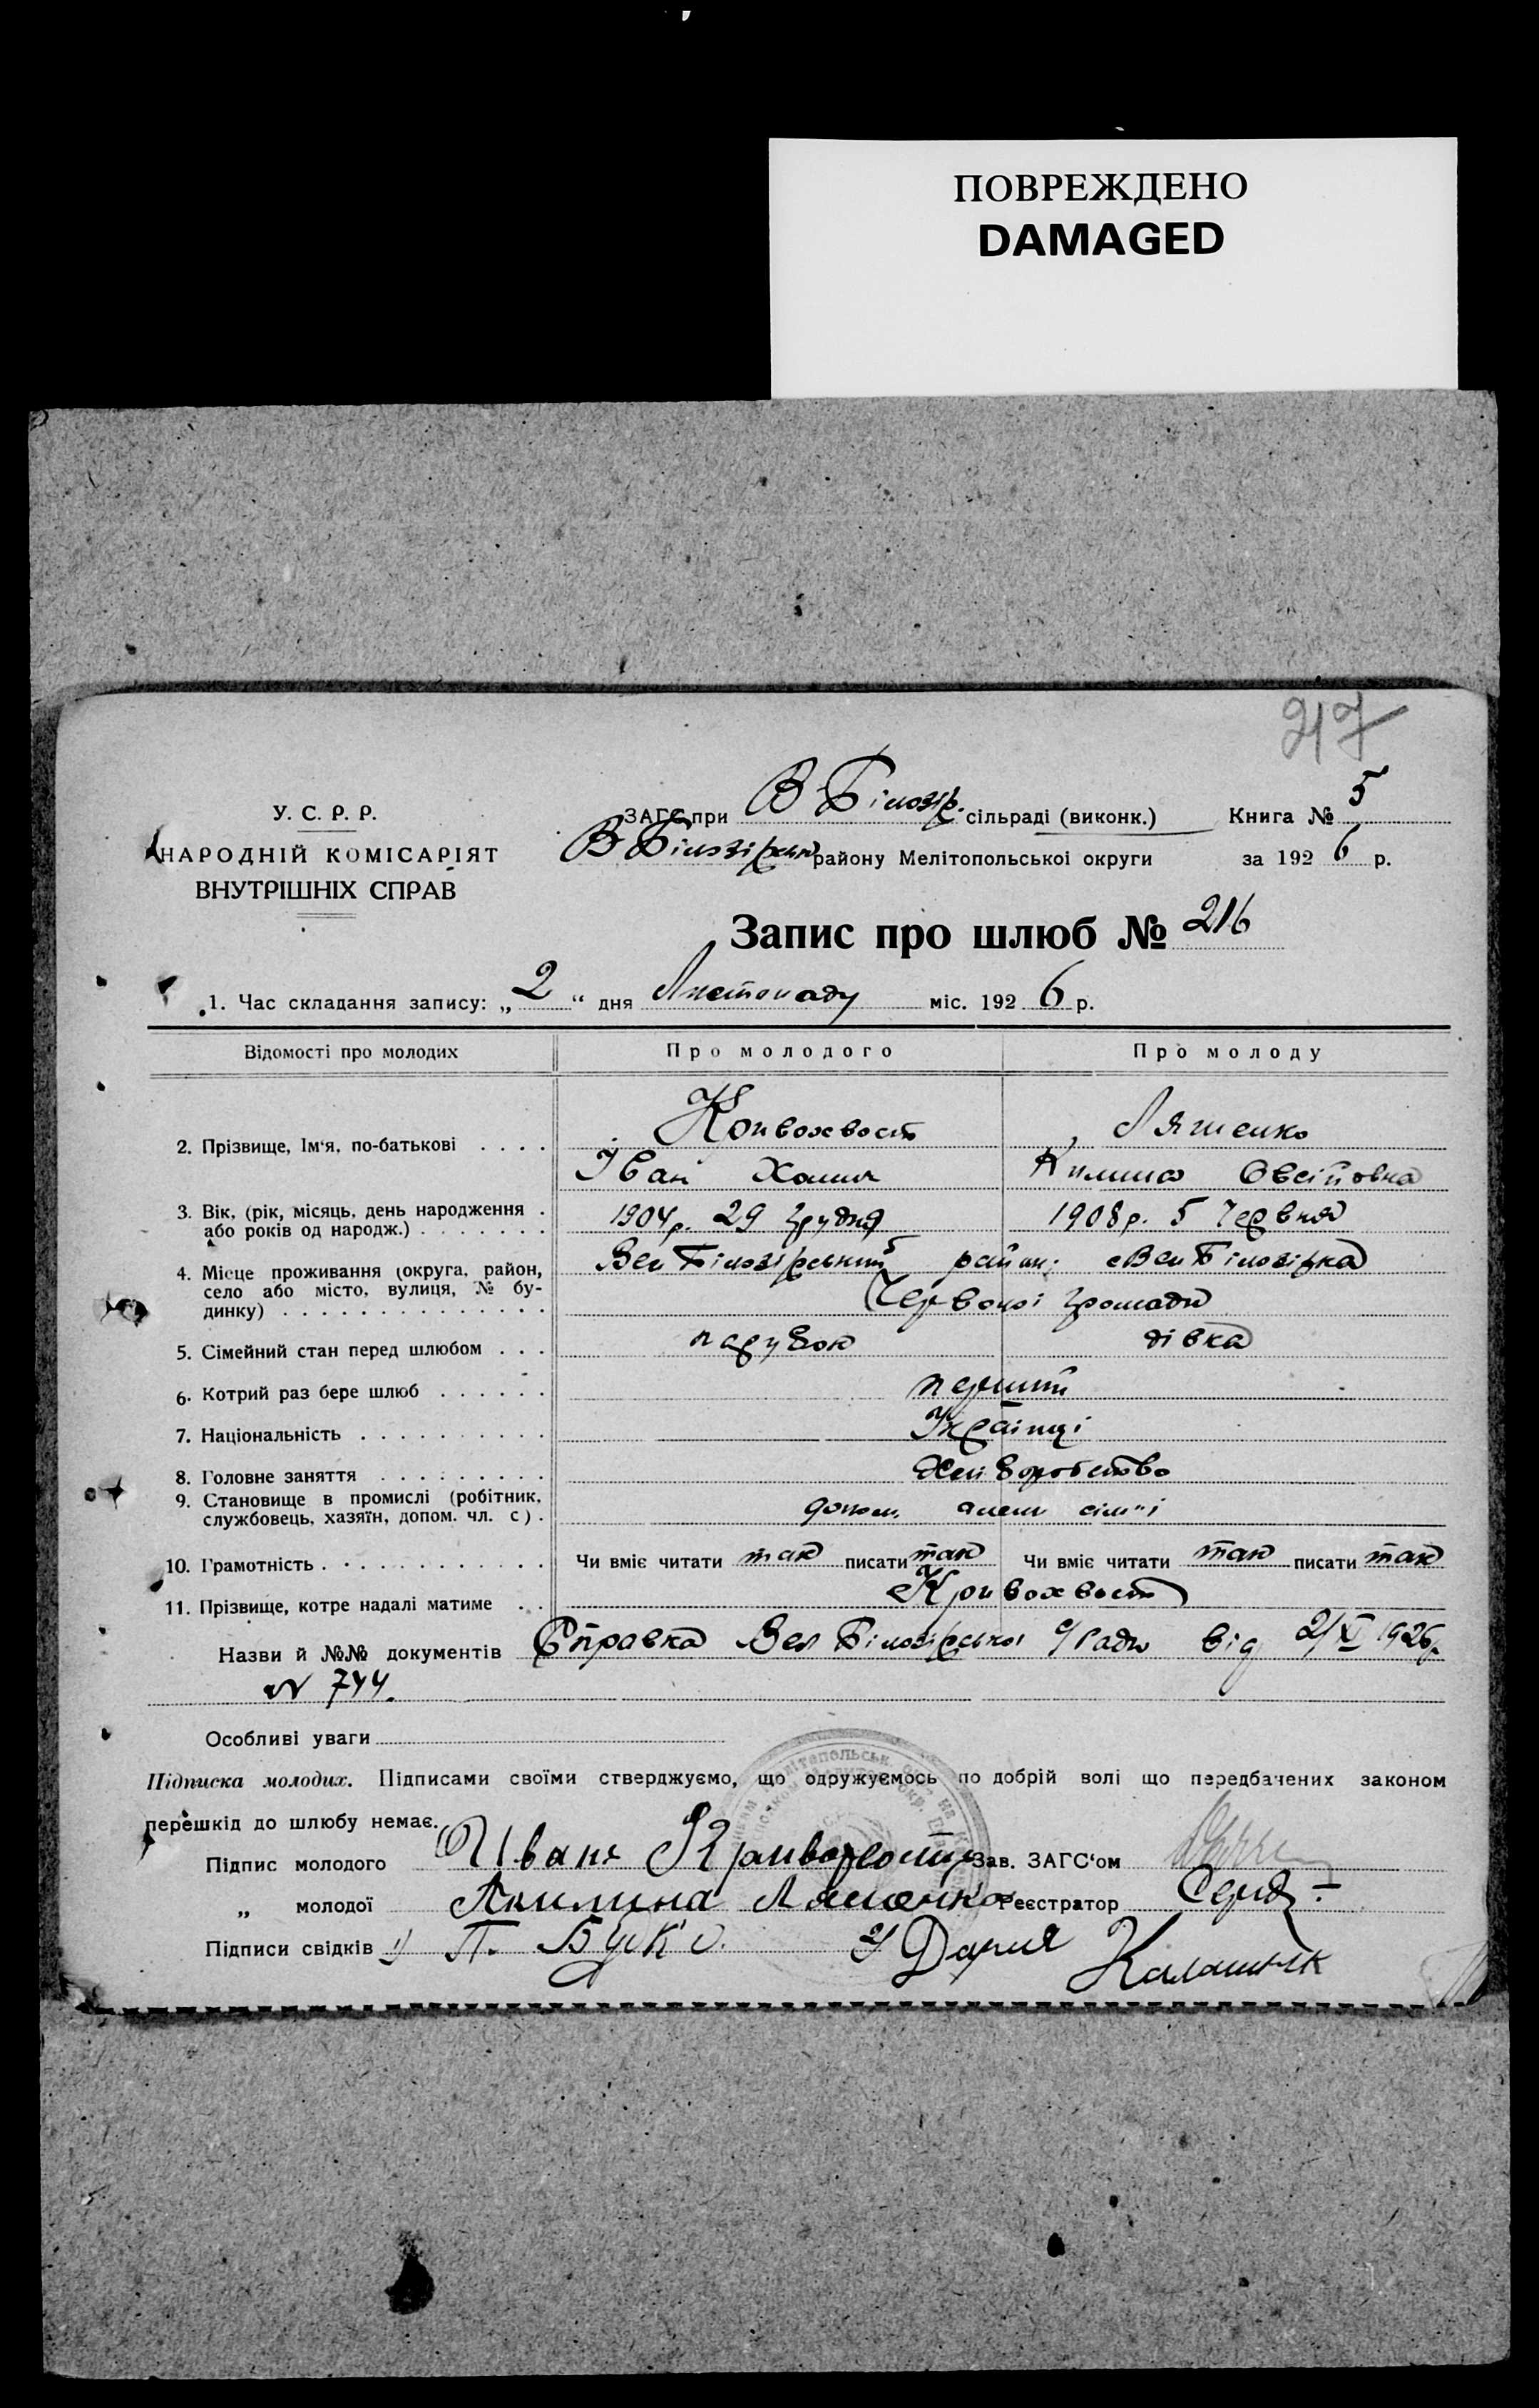 ПОВРЕЖДЕНО
DAMAGED
217
У. С. Р. Р.
НАРОДНІЙ КОМІСАРІЯТ
ВНУТРІШНІХ СПРАВ
ЗАГС при В Білозір. сільраді (виконк.) Книга № 5
В Білозірськ району Мелітопольської округи за 1926 р.
Запис про шлюб № 216
1. Час складання запису: „2“ дня Листопаду міс. 1926 р.
Відомості про молодих Про молодого Про молоду
2. Прізвище, Ім'я, по-батькові . . . . Кривохвост Ляшенко
Іван Хомич Килина Овсіїовна
3. Вік, (рік, місяць, день народження . 1904 р. 29 Грудня 1908 р. 5 Червня
або років од народж.) . . . . . . .
4. Місце проживання (округа, район, Вел Білозірський район. с Вел Білозірка
село або місто, вулиця, № бу-
динку) . . . . . . . . . . . . . . Червоної громади
5. Сімейний стан перед шлюбом . . . парубок дівка
6. Котрий раз бере шлюб . . . . . . перший
7. Національність . . . . . . . . . . Українці
8. Головне заняття . . . . . . . . . Хліборобство
9. Становище в промислі (робітник,
службовець, хазяїн, допом. чл. с) . допом. члени сім"ї
10. Грамотність . . . . . . . . . . . . Чи вміє читати так писати так Чи вміє читати так писати так
11. Прізвище, котре надалі матиме . . Кривохвост
Назви й №№ документів Справка Вел Білозірської с/Ради від 2/XI 1926р
N 744.
Особливі уваги
Підписка молодих. Підписами своїми стверджуємо, що одружуємось по добрій волі що передбачених законом
перешкід до шлюбу немає.
Підпис молодого Іван Кривохвост Зав. ЗАГС'ом
„ молодої Акилина Ляшенко Реєстратор
Підписи свідків 1/ П. Буйко. 2/ Дария Калашник